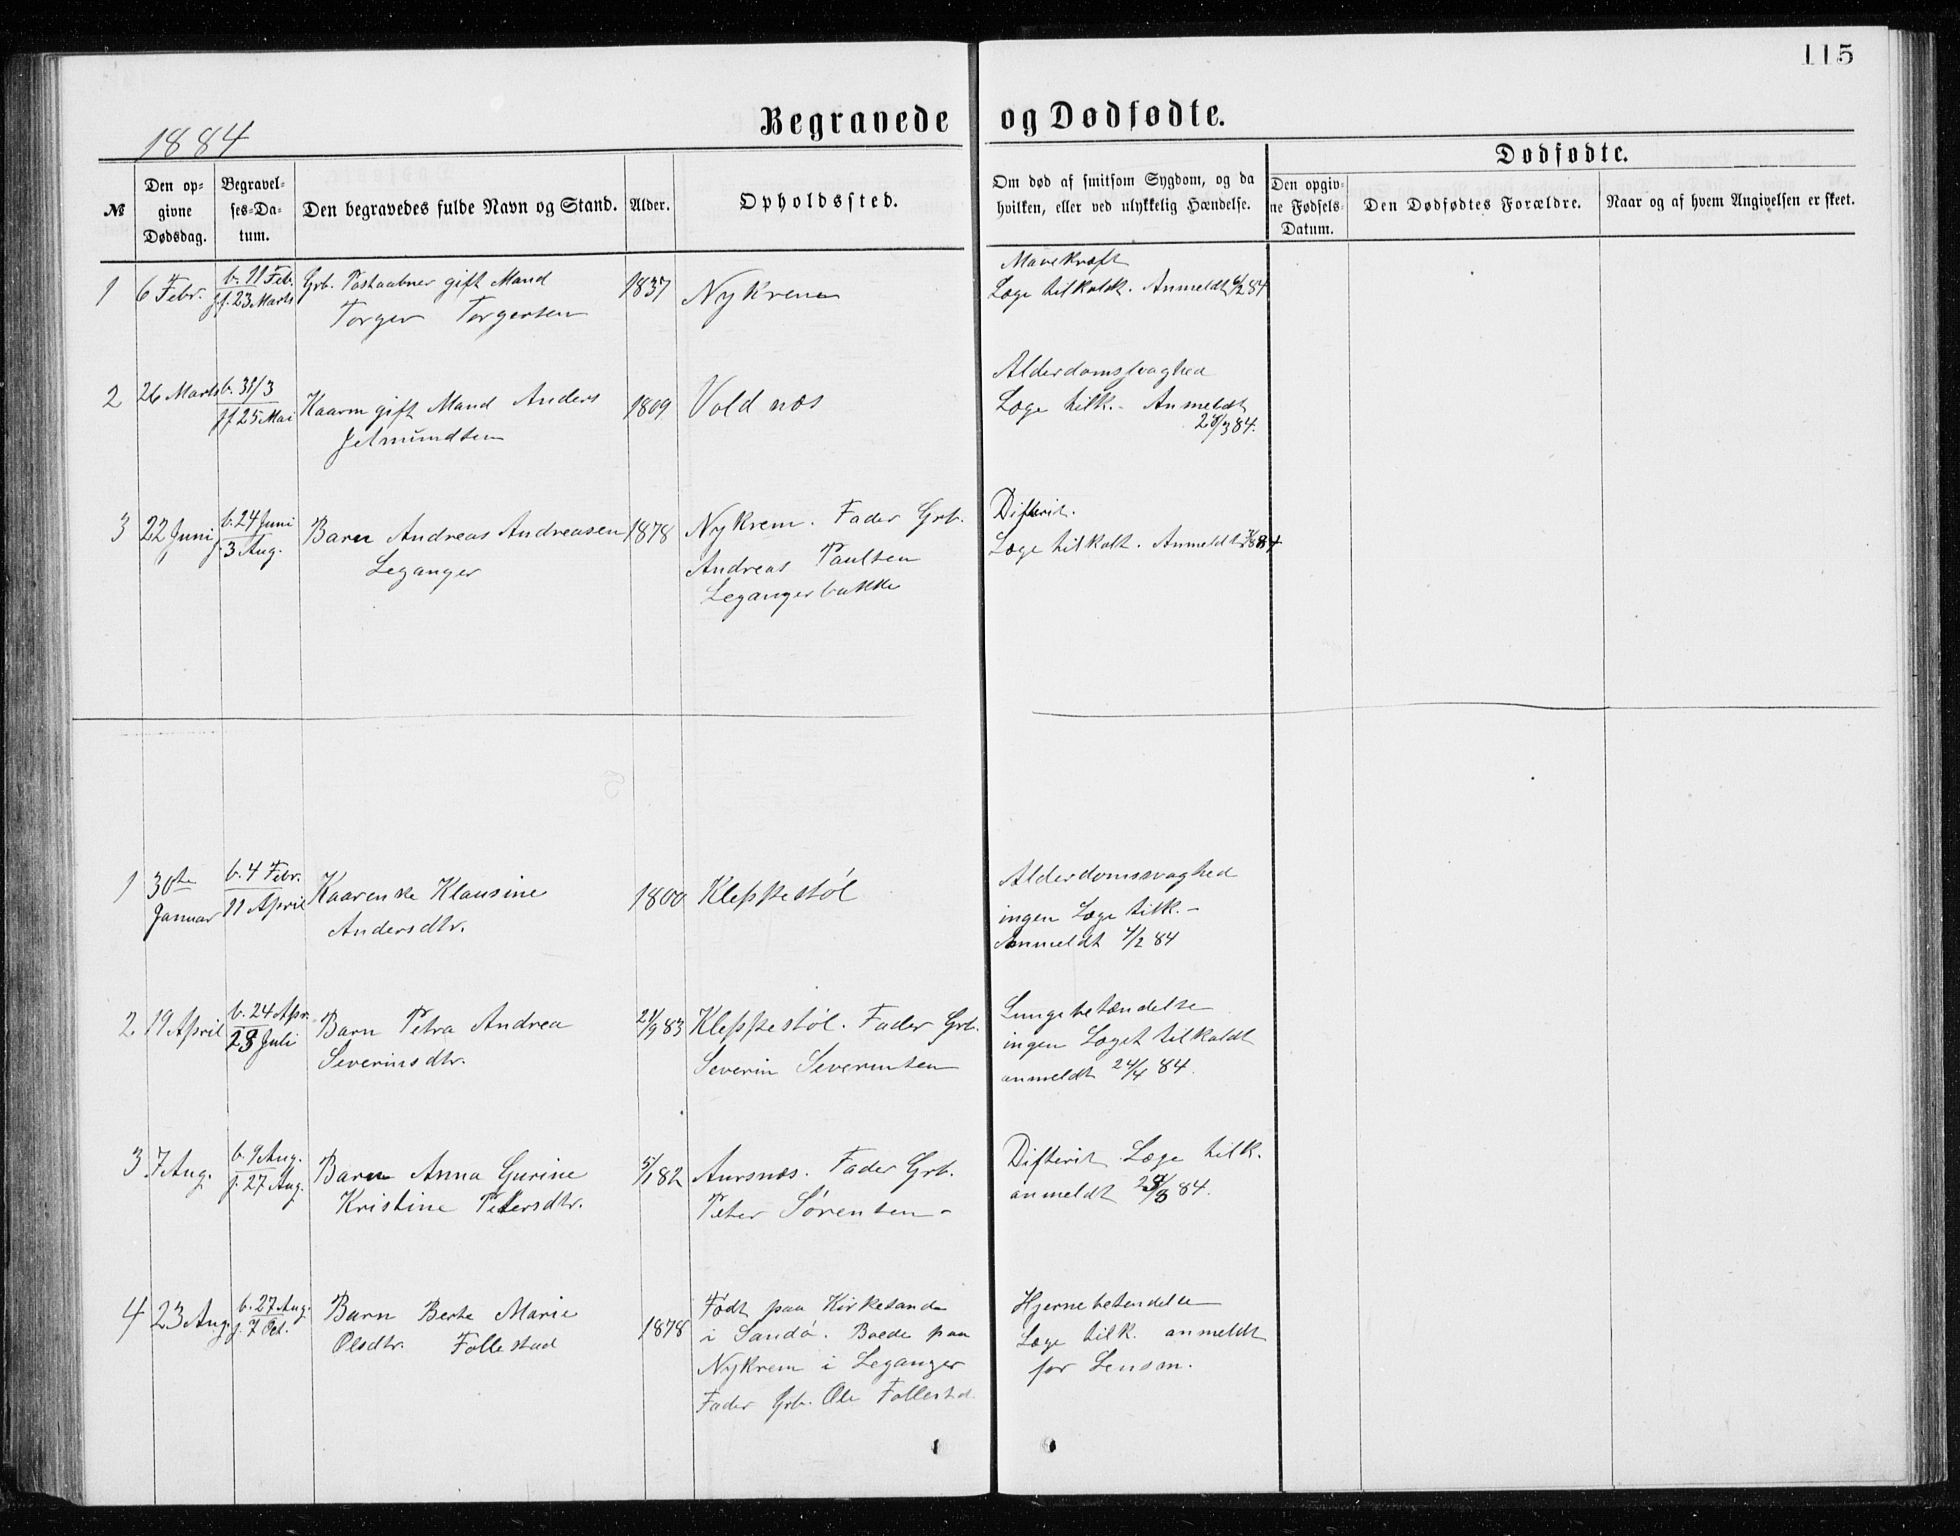 115
Begravede og Dødfødte.
1884
Dødfødte.
№
Den op-
givne
Dødsdag.
Begravel-
ses-Da-
tum.
Den begravedes fulde Navn og Stand.
Alder.
Opholdssted.
Om død af smitsom Sygdom, og da
hvilken, eller ved ulykkelig Hændelse.
Den opgiv-
ne Fødsels-
Datum.
Den Dødfødtes Forældre.
Naar og af hvem Angivelsen er skeet.
1 6 Febr.
b. 11 Feb.
jf. 23 Marts
Grb. Postaabner gift Mand
Torger Torgersen
1837
Nykrem
Mavekræft
Læge tilkaldt. Anmeldt 6/2 84
2 26 Marts
b. 31/3
jf 25 Mai
Kaarm gift Mand Anders
Jetmundsen
1809
Voldnæs
Alderdomssvaghed
Læge tilk. - Anmeldt
28/3 84.
3 22 Juni
b. 24 Juni
j. 3 Aug.
Barn Andreas Andreasen
Leganger
1878
Nykrem. Fader Grb.
Andreas Paulsen
Legangerbakke
Difterit.
Læge tilkalt. Anmeldt 84
1 30te
Januar
b. 4 Febr.
11 April
Kaarenke Klausine
Andersdtr.
1800
Kleppestøl
Alderdomssvaghed
ingen Læge tilk. -
Anmeldt 4/2 84
2 19 April
b. 24 Apr.
28 Juli
Barn Petra Andrea
Severinsdtr.
21/9 83
Kleppestøl. Fader Grb.
Severin Severinsen
Lungebetændelse
ingen Læget tilkaldt
anmeldt 24/4 84.
3 7 Aug.
b. 9 Aug.
j. 27 Aug.
Barn Anna Gurine
Kristine Petersdtr.
5/1 82
Aursnæs. Fader Grb.
Peter Sørensen -
Difterit Læge tilk.
anmeldt 28/8 84.
4 23 Aug.
b. 27 Aug.
j. 7 Oct.
Barn Berte Marie
Olsdtr. Follestad
1878
Født paa Kirkesande
i Sandø. Boede paa
Nykrem i Leganger
Fader Grb. Ole Follestd
Hjernebetendelse
Læge tilk. anmeldt
for Lensm.